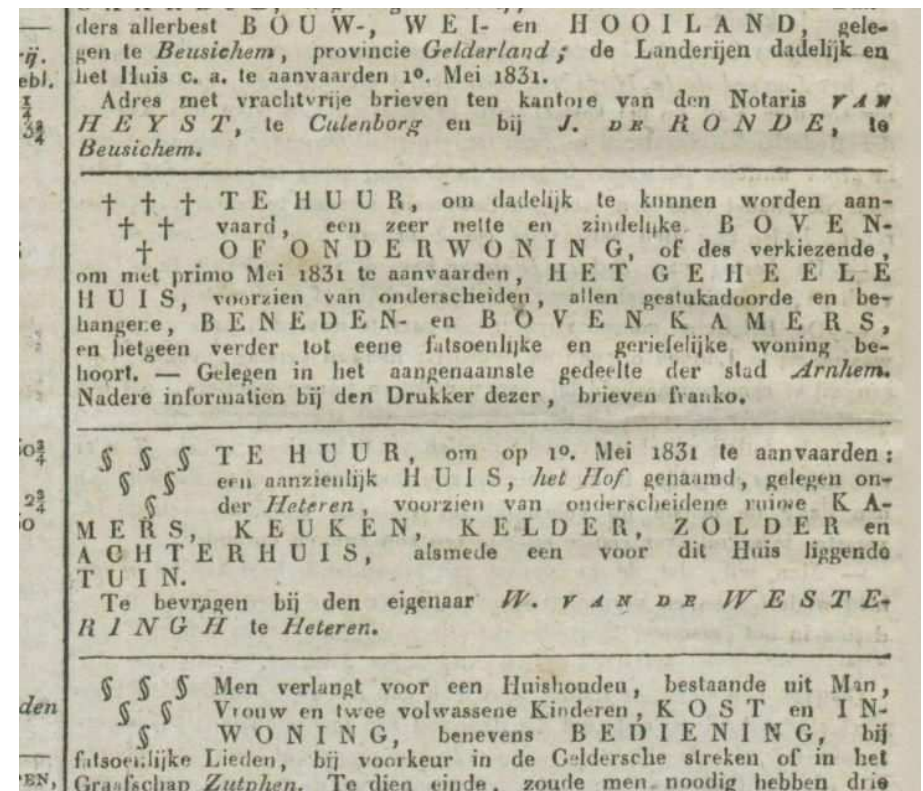 ders allerbest BOUW-, WEI- en HOOILAND, gele-
gen te Beusichem, provincie Gelderland; de Landerijen dadelijk en
het Huis c. a. te aanvaarden 1º. Mei 1831.
Adres met vrachtvrije brieven ten kantore van den Notaris VAN
HEYST, te Culenborg en bij J. DE RONDE, te
Beusichem.
† † † TE HUUR, om dadelijk te kunnen worden aan-
† † vaard, een zeer nette en zindelijke BOVEN-
† OF ONDERWONING, of des verkiezende,
om met primo Mei 1831 te aanvaarden, HET GEHEELE
HUIS, voorzien van onderscheiden, allen gestukadoorde en be-
hangene, BENEDEN- en BOVENKAMERS,
en hetgeen verder tot eene fatsoenlijke en geriefelijke woning be-
hoort. — Gelegen in het aangenaamste gedeelte der stad Arnhem.
Nadere informatien bij den Drukker dezer, brieven franko.
§ § § TE HUUR, om op 1º. Mei 1831 te aanvaarden:
§ § een aanzienlijk HUIS, het Hof genaamd, gelegen on-
§ der Heteren, voorzien van onderscheidene ruime KA-
MERS, KEUKEN, KELDER, ZOLDER en
ACHTERHUIS, alsmede een voor dit Huis liggende
TUIN.
Te bevragen bij den eigenaar W. VAN DE WESTE-
RINGH te Heteren.
§ § § Men verlangt voor een Huishouden, bestaande uit Man,
§ § Vrouw en twee volwassene Kinderen, KOST en IN-
§ WONING, benevens BEDIENING, bij
fatsoenlijke Lieden, bij voorkeur in de Geldersche streken of in het
Graafschap Zutphen. Te dien einde, zoude men noodig hebben drie